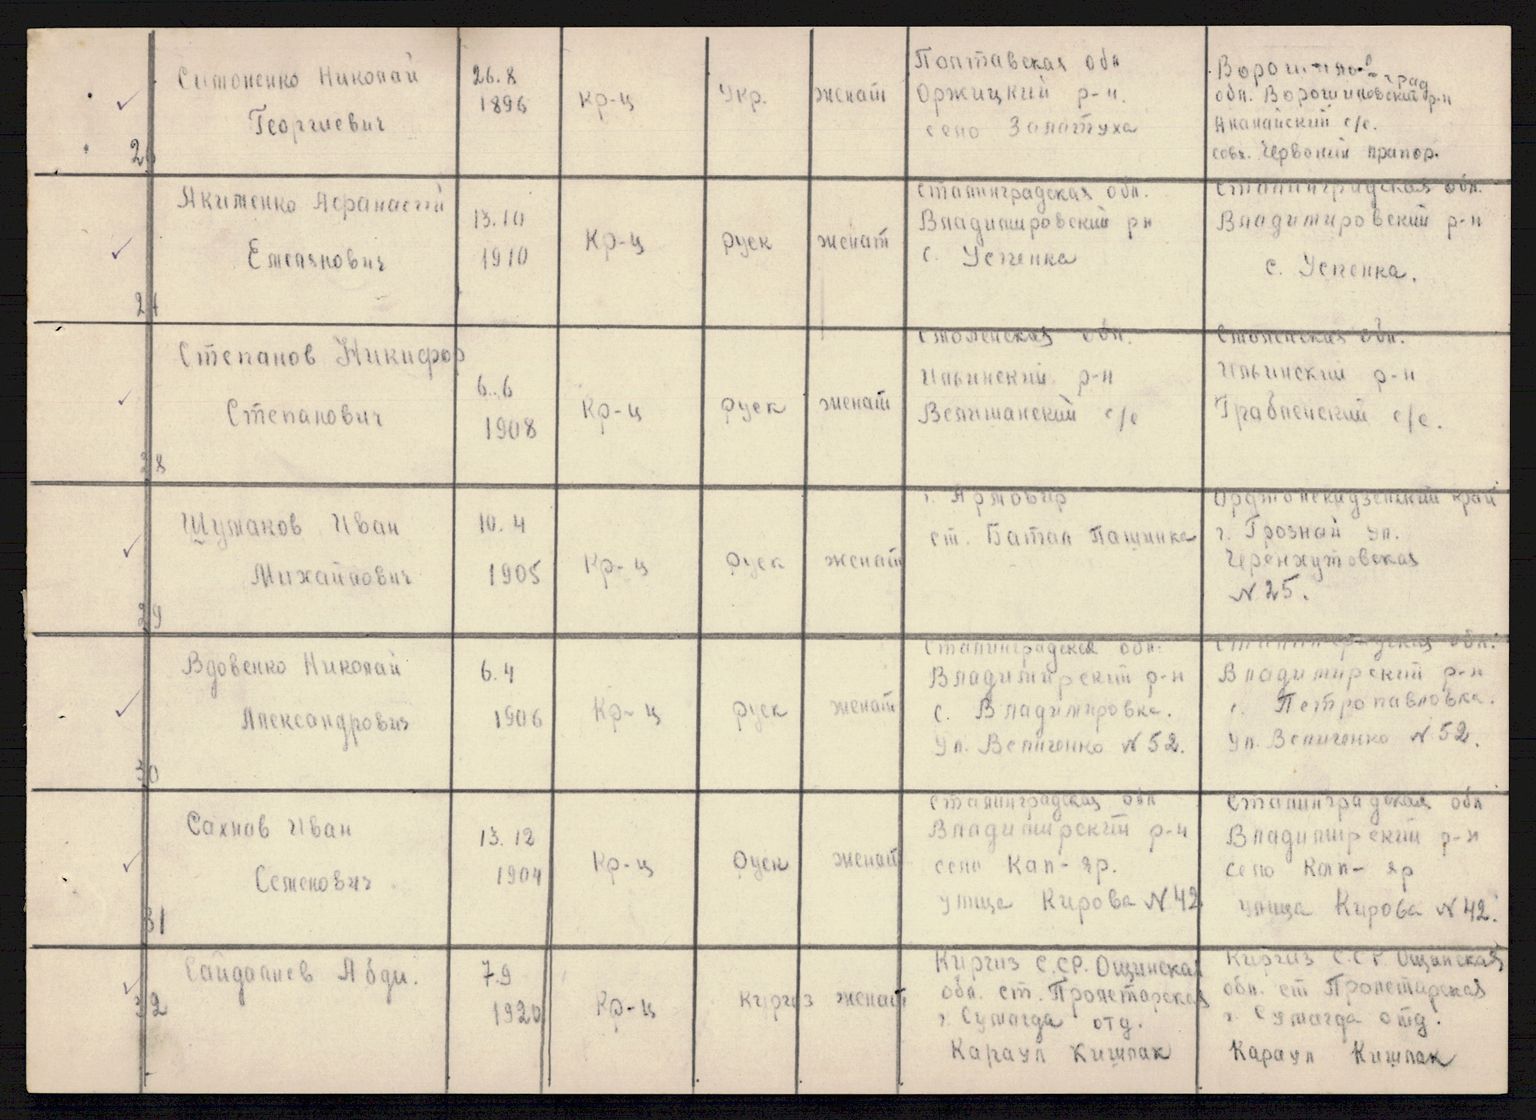 Симоненко Николай
Георгиевич
26
26.8
1896
Кр-ц
Укр.
женат
Полтавская обл
Оржицкий р-н.
село Золотуха
обл. Ворошиловский р-н
с/с.
совх. Червоний прапор.
Якименко Афанасий
Емелянович
13.10
1910
Кр-ц
руск
женат
Сталинградская обл.
Владимировский рн
с. Успенка
Сталинградская обл.
Владимировский р-н
с. Успенка.
Степанов Никифор
Степанович
6.6
1908
Кр-ц
руск
женат
Смоленская обл.
Ильинский р-н
с/с
Смоленская обл.
Ильинский р-н
с/с.
Шумаков Иван
Михайлович
29
10.4
1905
Кр-ц
руск
женат
г. Армовир
ст. Батал Пашинка
Орджонекидзенский край
г. Грознай ул.
N 25.
Вдовенко Николай
Александрович
30
6.4
1906
Кр-ц
руск
женат
Сталинградская обл.
Владимирский р-н
с. Владимировка.
Ул. Величенко N 52.
Сталинградская обл.
Владимирский р-н
с. Петропавловка.
Ул. Величенко N 52.
Сахнов Иван
Семенович
31
13.12
1904
Кр-ц
руск
женат
Сталинградская обл
Владимирский р-н
село Кап-яр.
улица Кирова N 42
Сталинградская обл
Владимирский р-н
село Кап-яр
улица Кирова N 42.
Сайдалиев Абди.
32
7.9
1920
Кр-ц
Киргиз
женат
Киргиз С.СР. Ощинская
обл. ст. Пролетарская
г. Сумагда отд.
Караул Кишлак
Киргиз С.С.Р. Ощинская
обл. ст Пролетарская
г. Сумагда отд.
Караул Кишлак